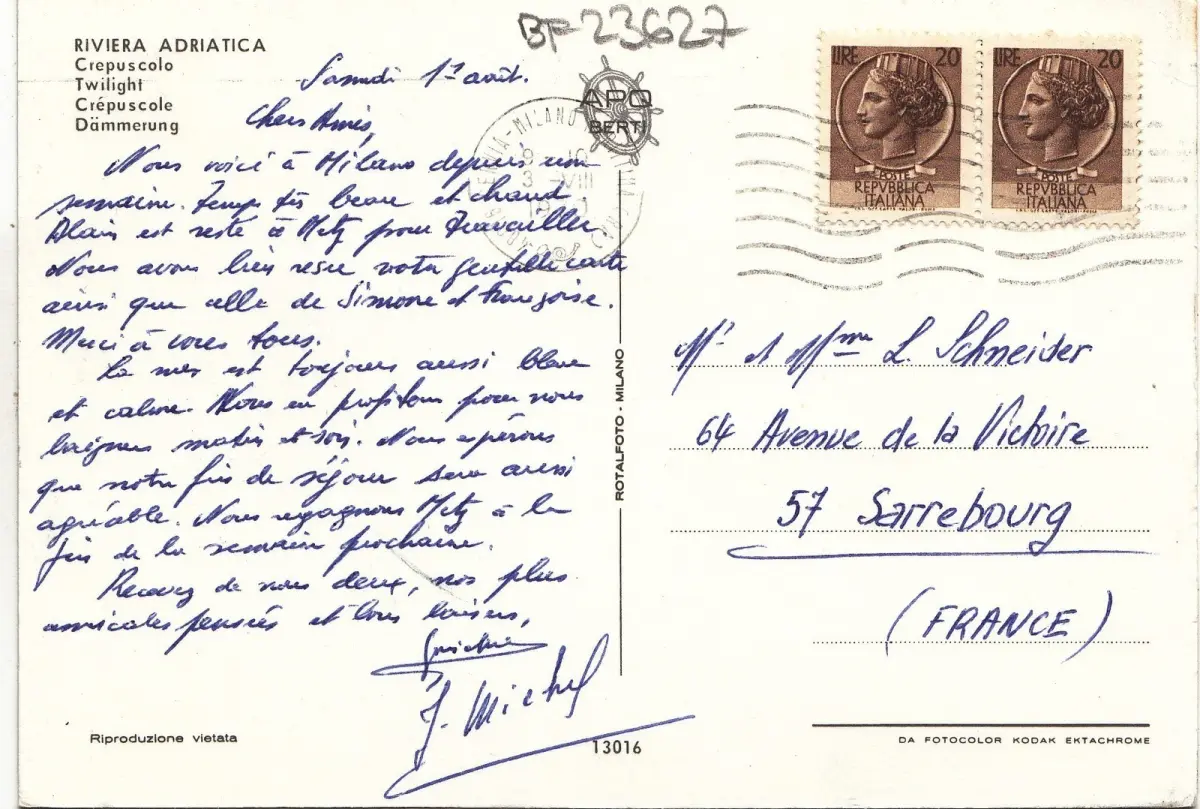 BF 23627
RIVIERA ADRIATICA
Crepuscolo
Twilight
Crépuscole
Dämmerung
Samedi 1er août.
Chers Amis,
Nous voici à Milano depuis une
semaine. Temps très beau et chaud
Alain est resté à Metz pour travailler
Nous avons bien reçue votre gentille carte
ainsi que celle de Simone et Françoise.
Merci à vous tous.
La mer est toujours aussi bleue
et calme. Nous en profitons pour nous
baigner matin et soir. Nous espérons
que notre fin de séjour sera aussi
agréable. Nous regagnons Metz à la
fin de la semaine prochaine.
Recevez de nous deux, nos plus
amicales pensées et bons baisers,
J. Michel
Riproduzione vietata
APO
BERTI
LIRE 20
POSTE
REPVBBLICA
ITALIANA
LIRE 20
POSTE
REPVBBLICA
ITALIANA
3 - VIII
ROTALFOTO - MILANO
Mr et Mme L. Schneider
64 Avenue de la Victoire
57 Sarrebourg
(FRANCE)
13016
DA FOTOCOLOR KODAK EKTACHROME